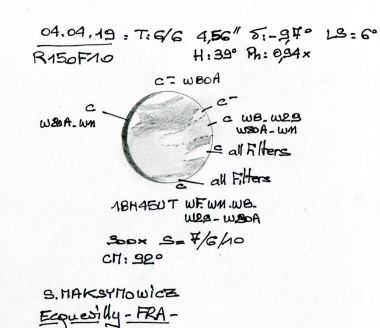 04.04.19 : T: 6/6 4,56" δ: -27° LS = 6°
R150F10 H: 39° Ph: 0,94x
C = W80A
C
W80A - W11
C-
C W8 - W29
W80A - W11
C all Filters
C all Filters
18H45UT WF. W11. W8.
W29 - W80A
300x S = 7/6/10
CM: 92°
S. MAKSYMOWICZ
Ecquevilly - FRA -